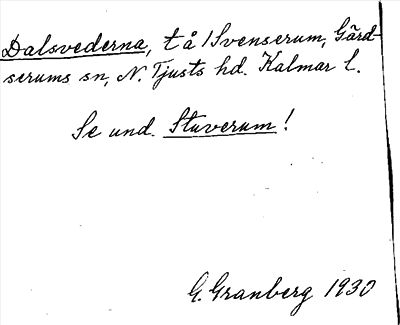 Dalsvederna, tå/Svenserum, Gärd-
serums sn, N. Tjusts hd. Kalmar l.
Se und. Stuverum!
G. Granberg 1930